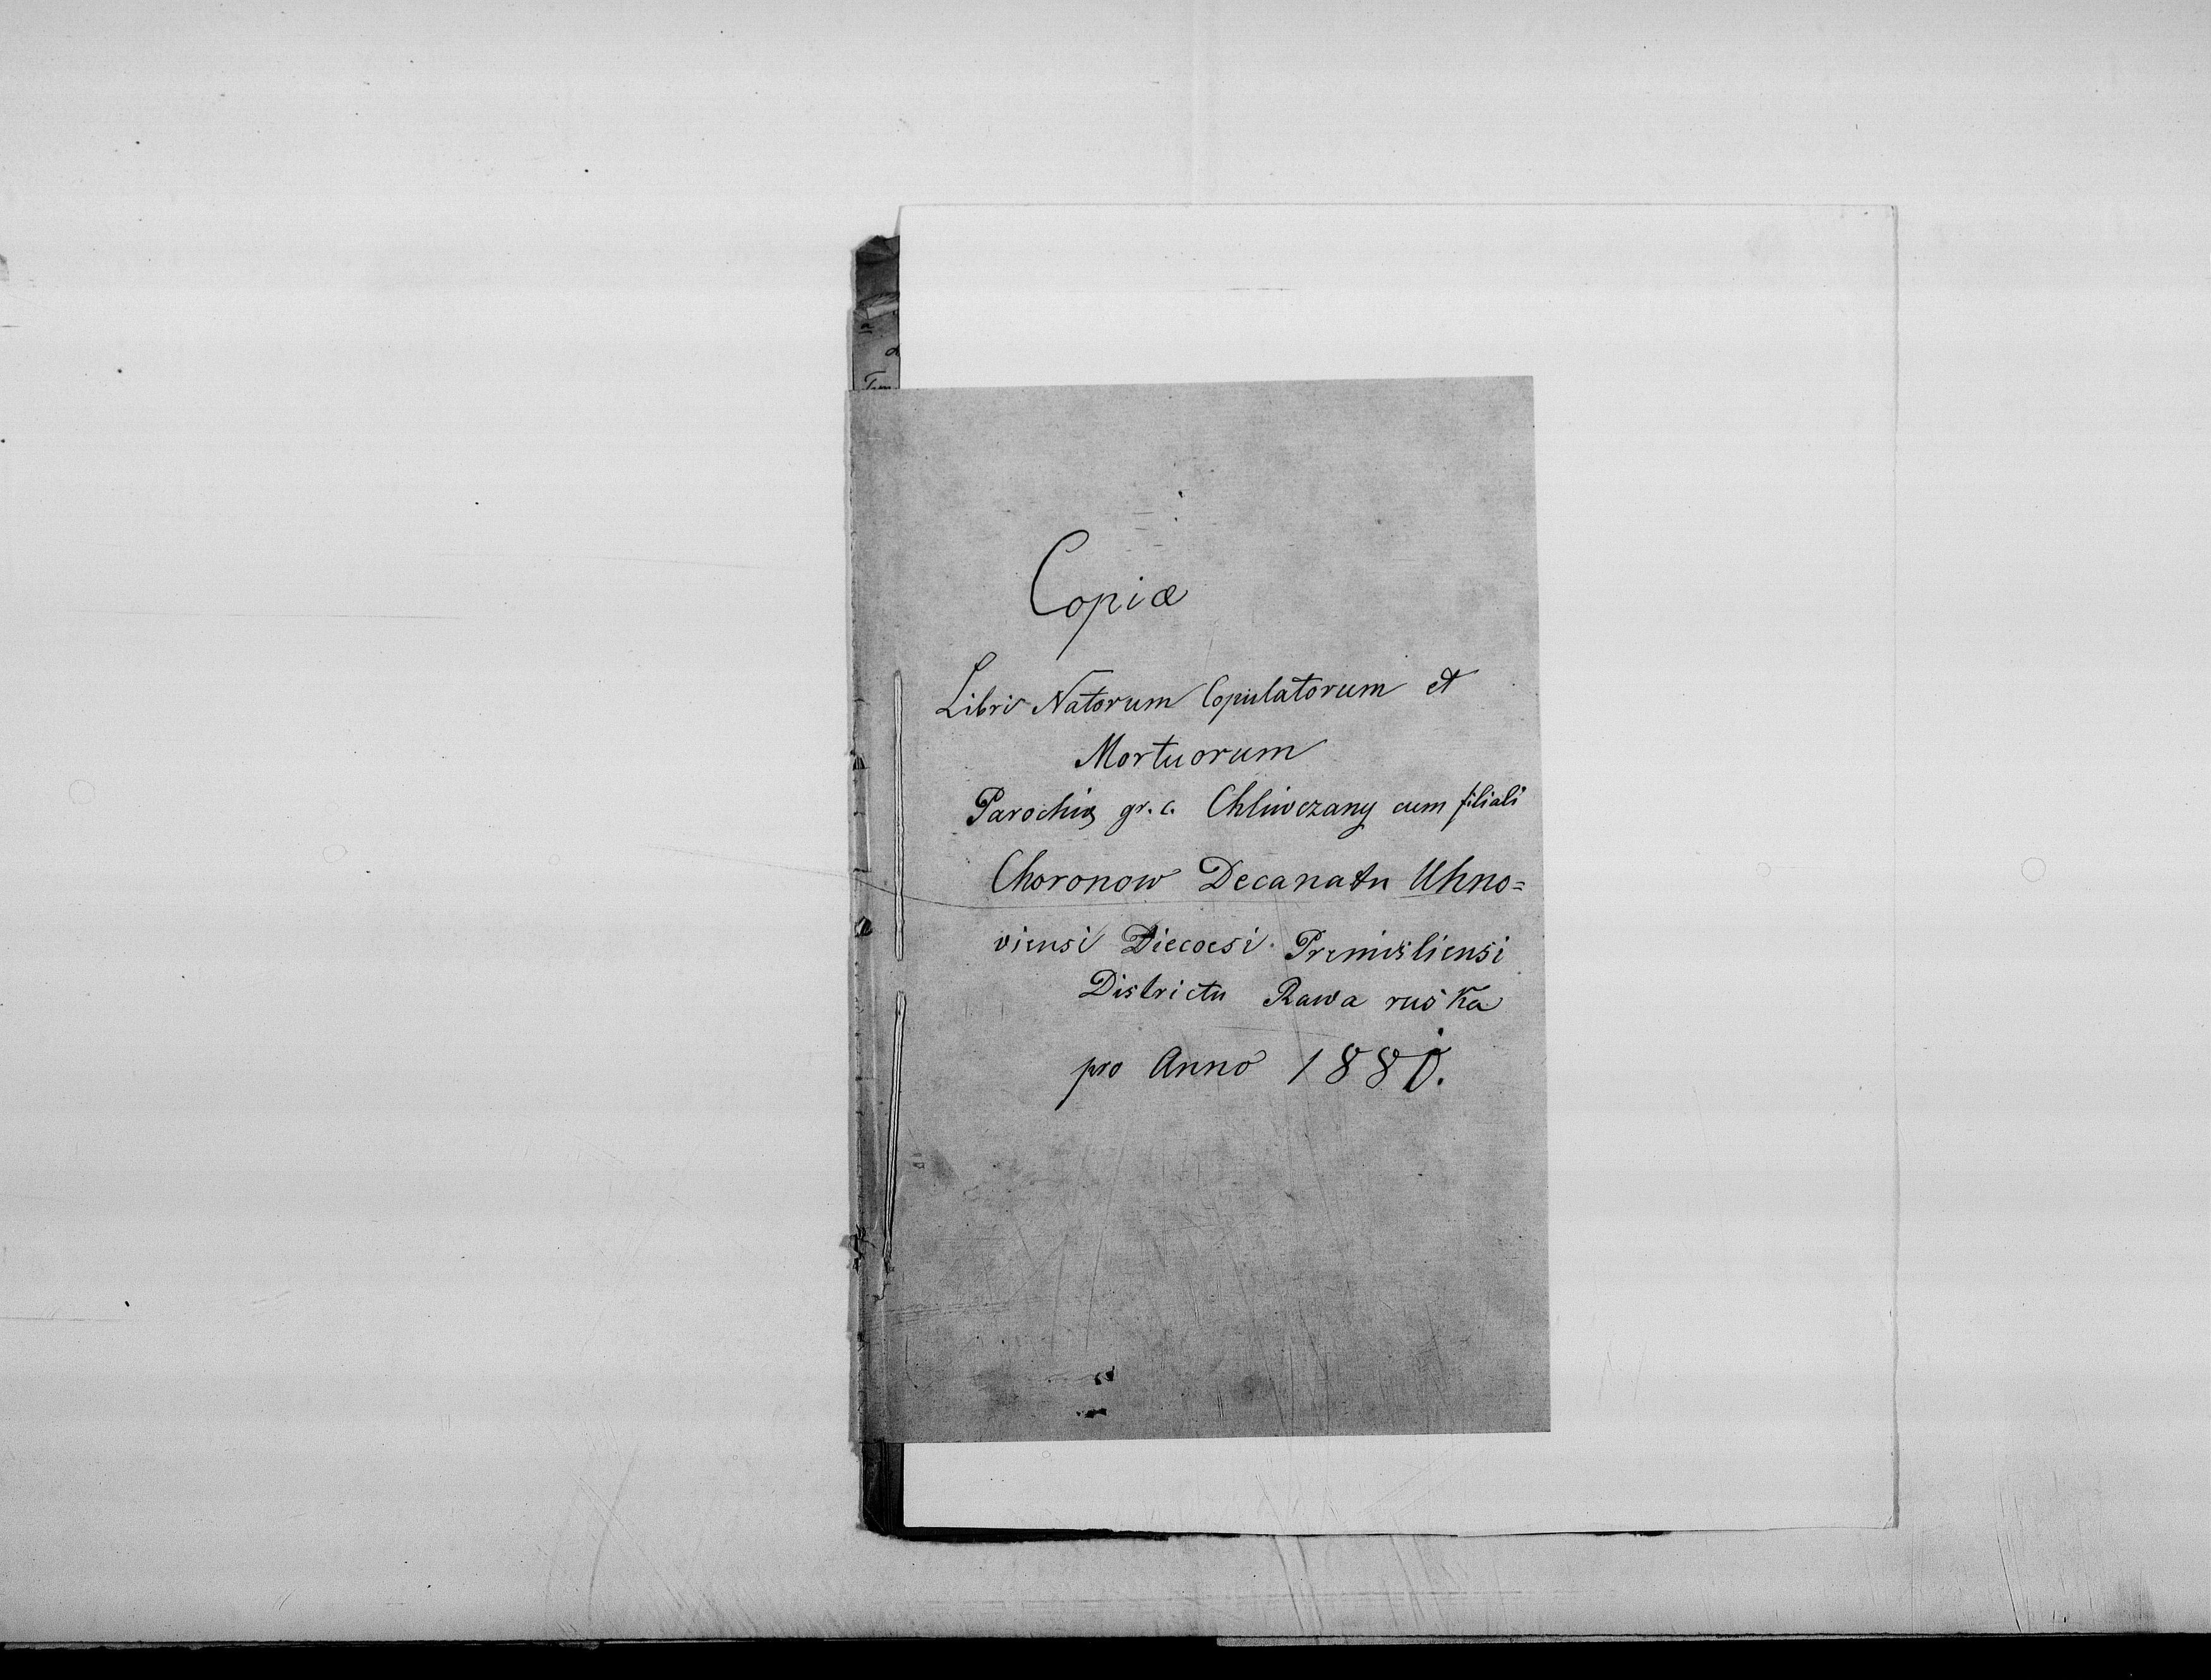 Copiæ
Libri Natorum Copulatorum et
Mortuorum
Parochiæ gr. c. Chliwczany cum filiali
Choronow Decanatu Uhno=
viensi Diecoesi Premisliensi
Districtu Rawa ruska
pro Anno 1880.